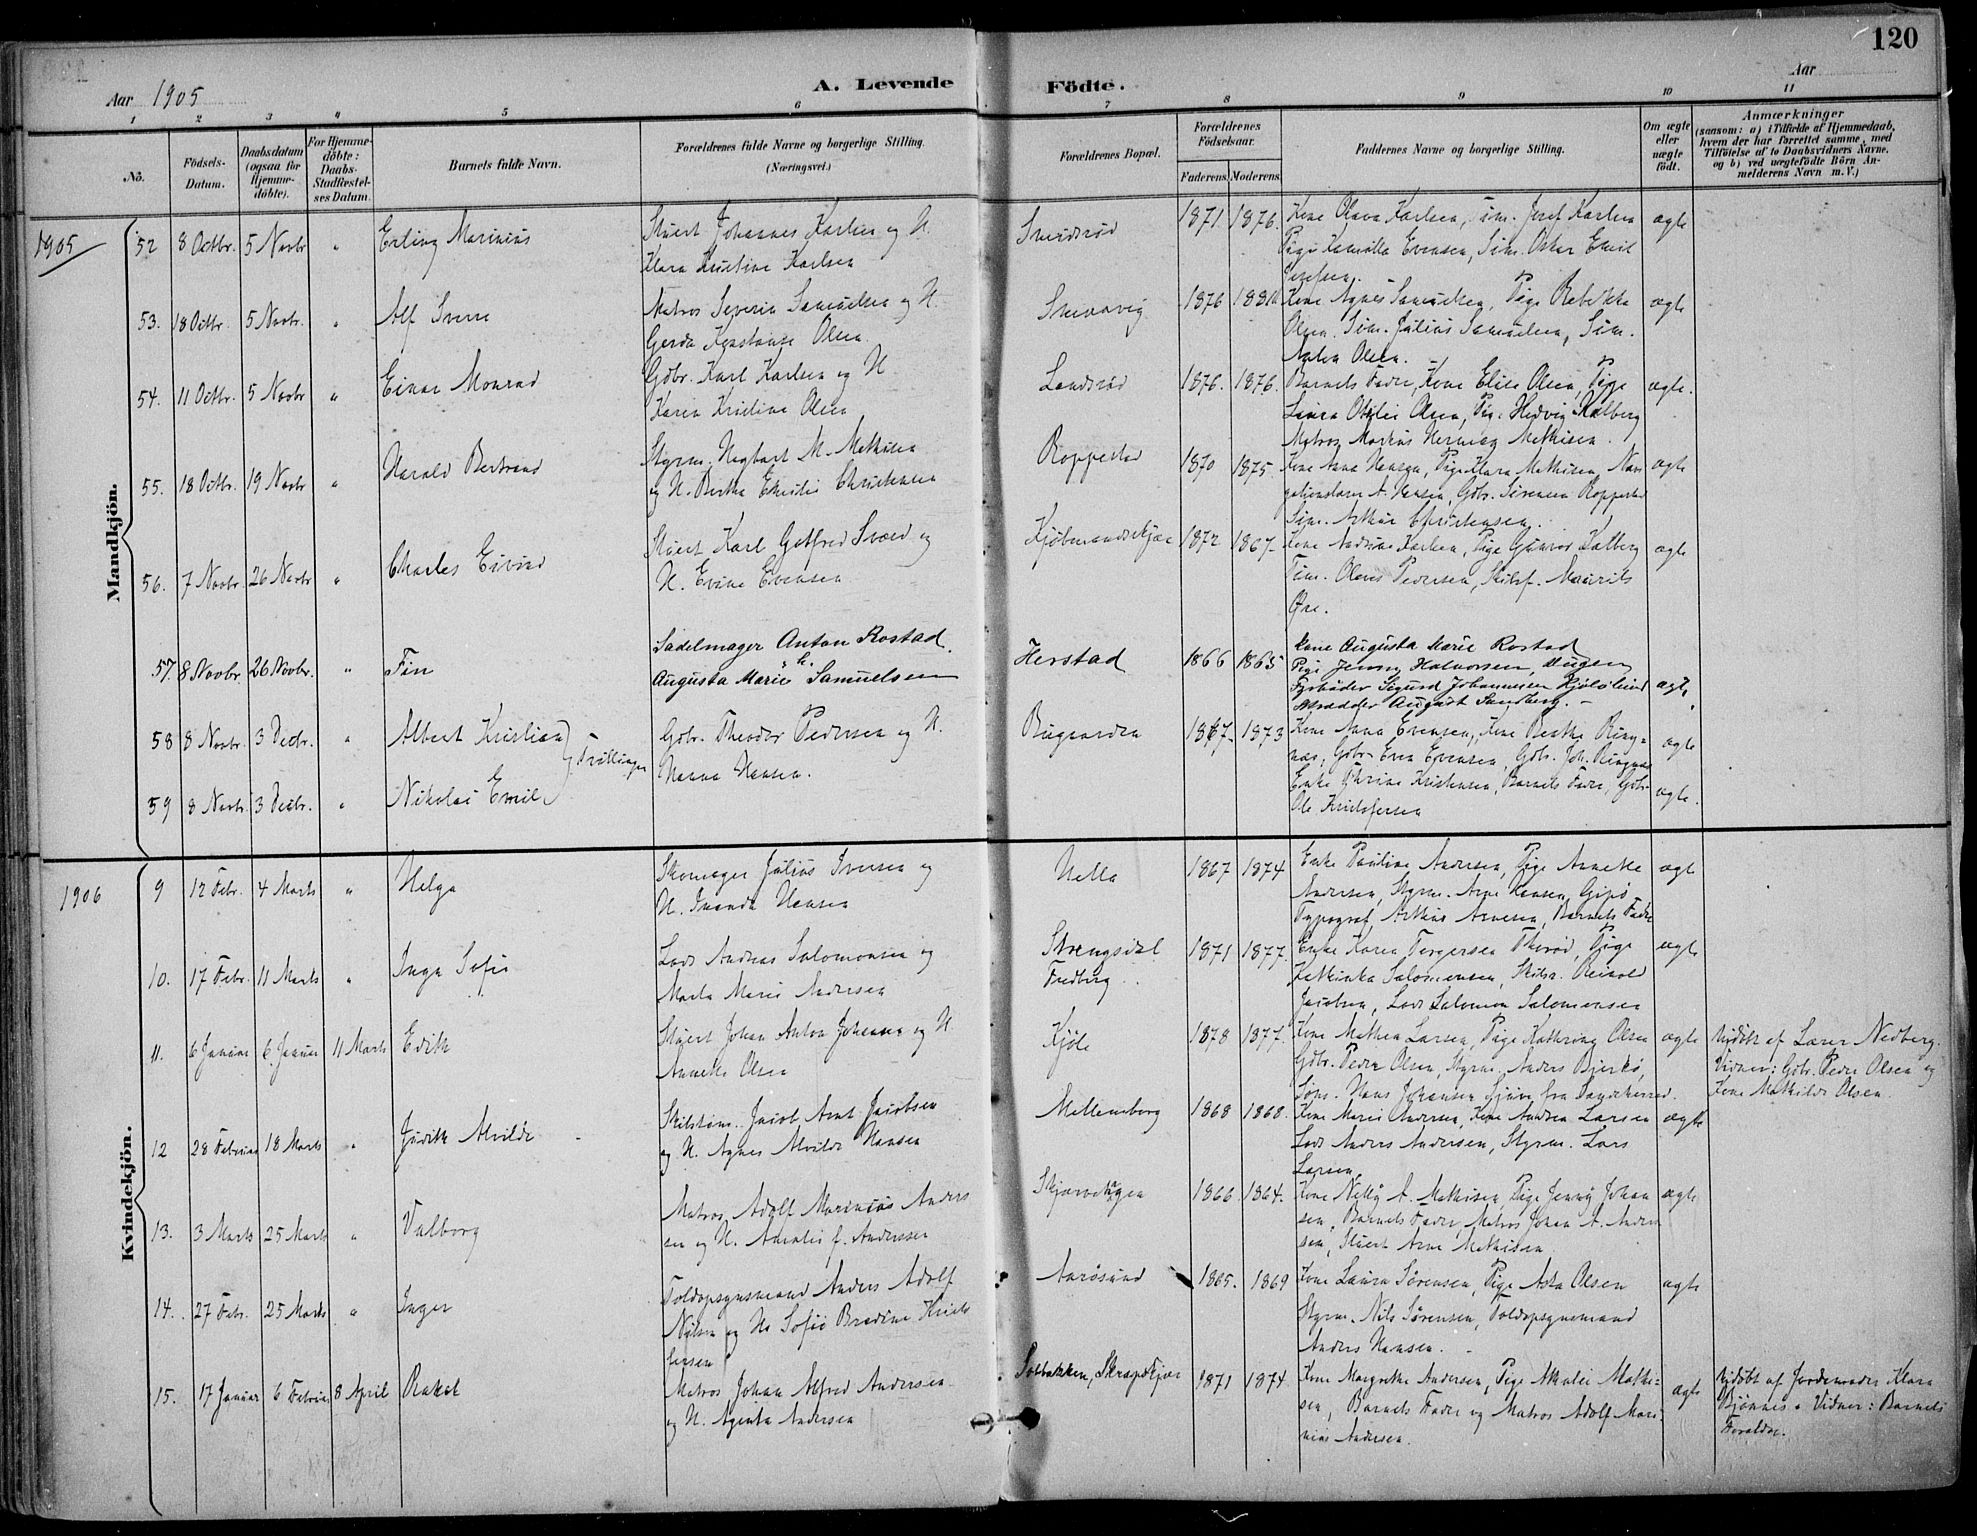 120
Aar 1905
A. Levende Födte.
Aar
1 2 3 4 5 6 7 8 9 10 11
No.
Födsels-Datum.
Daabsdatum (ogsaa for Hjemmedöbte).
For Hjemmedöbte: Daabs-Stadfæstelses Datum.
Barnets fulde Navn.
Forældrenes fulde Navne og borgerlige Stilling. (Næringsvei.)
Forældrenes Bopæl.
Forældrenes Födselsaar.
Faderens. Moderens.
Faddernes Navne og borgerlige Stilling.
Om ægte eller uægte födt.
Anmærkninger
(saasom: a) i Tilfælde af Hjemmedaab, hvem der har forrettet samme, med Tilföielse af to Daabsvidners Navne, og b) ved uægtefödte Börn Anmelderens Navn m. V.)
Mandkjön.
1905 52 8 Octbr. 5 Novbr " Erling Marinius
Stuert Johannes Karlsen og H.
Klara Kristine Karlsen
1871 1876. Kone Olava Karlsen, Tim. Josef Karlsen ægte
Pige Kamilla Evensen, Sim. Oskar Emil
Josefsen.
53. 18 Octbr. 5 Novbr. " Alf Sverre
Matros Severin Samuelsen og H.
Gerda Konstanse Olsen.
1876 Kone Agnes Samuelsen, Pige Rebekka ægte
Olsen. Söm. Julius Samuelsen, Söm.
Anton Olsen.
54. 11 Octbr. 5 Novbr " Einar Monrad
Gdbr. Karl Karlsen og H
Karen Kristine Olsen
1876. 1876. Barnets Fader, Kone Elise Olsen, Pige ægte.
Laura Otilie Olsen, Pig. Hedvig Kalberg
Matros Markus Herman Mathisen.
55. 18 Octbr. 19 Novbr " Harald Bertrand
Styrm. Hagbart M. Mathisen
og H. Berthe Emilie Christensen
Roppestad 1870 1875. Kone Anna Hansen, Pige Klara Mathisen, Navi ægte
gationslærer A. Hansen, Gdbr. Sörensen Roppestad
Söm. Arthur Christensen.
56. 7 Novbr. 26 Novbr " Charles Eivind
Stuert Karl Gotfred Sværd og
H. Evine Evensen
Kjöbmandskjær 1872 1867. Kone Andrine Karlsen, Pige Gunvor Kalberg ægte
Tim. Olavus Pedersen, Skibsf. Maurits
Öre.
57. 8 Novbr 26 Novbr. " Fin
Sadelmager Anton Rostad.
Augusta Marie f. Samuelsen
Herstad 1866 1865 Kone Augusta Marie Rostad
Pige Jenny Halvorsen, Haugen
Fyrböder Sigurd Johannesen Kjölölund ægte.
Skrædder August Sandberg. -
58 8 Novbr. 3 Decbr. " Albert Kristian } Tvillinger
Gdbr. Theodor Pedersen og H.
Hanna Hansen.
Bugaarden 1867. 1873 Kone Anna Evensen, Kone Berthe Ring= ægte
næs, Gdbr. Even Evensen, Gdbr. Joh. Ringnæs
59 8 Novbr. 3 Decbr. " Nikolai Emil
Enke Thrine Kristensen, Barnets Fader, Gdbr. ægte.
Ole Kristofersen
Kvindekjön.
1906 9 12 Febr. 4 Marts " Helga
Skomager Julius Iversen og
H. Inanda Hansen
Hella 1867 1874 Enke Pauline Andersen, Pige Annette ægte
Andersen, Styrm. Arne Hansen, Gipö
Typograf Arthur Arnesen, Barnets Fader
10. 17 Febr. 11 Marts " Inga Sofie
Lods Andreas Salomonsen og
Marta Marie Andersen
Strengsdal
Fredberg
1871 1877. Enke Karen Torgersen Thorød, Pige ægte
Kathinka Salomonsen, Skibsr. Reinold
Jacobsen, Lods Salomon Salomonsen
11. 6 Januar 6 Januar 11 Marts Edith
Stuert Johan Anton Johansen og H.
Annette Olsen
Kjöle 1878 1877. Kone Mathea Larsen, Pige Kathrine Olsen ægte
Gdbr. Peder Olsen, Styrm. Anders Bjerkö,
Söm. Hans Johansen
Hjdöbt af Lærer Nedberg.
Vidner: Gdbr. Peder Olsen og
Kone Mathilde Olsen
12 28 Februar 18 Marts " Judith Alvilde
Skibstöm. Jacob Arnt Jacobsen
og H. Agnes Alvilde Hansen
Mellemborg 1868 1868. Kone Marie Andersen, Kone Andrea Larsen ægte
Lods Anders Andersen, Styrm. Lars
Larsen
13. 3 Marts 25 Marts " Valborg
Matros Adolf Marinius Anders
en og H. Amalie f. Andersen
1866 1864. Kone Nelly A. Mathisen, Pige Jenny Johan ægte
sen, Barnets Fader, Matros Johan A. Ander
sen, Stuert Arne Mathisen.
14. 27 Febr. 25 Marts " Inger
Toldopsynsmand Anders Adolf
Nilsen og H. Sofie Bredine Krist
fersen
Aarösund 1865. 1869 Kone Laura Sörensen, Pige Asta Olsen ægte
Styrm. Nils Sörensen, Toldopsynsmand
Anders Hansen.
15. 17 Januar 6 Februar 8 April Rakel
Matros Johan Alfred Andersen
og H. Agenta Andersen
Solbakken, Skrapeskjær 1871 1874 Kone Margrethe Andersen, Pige Amalie Mathi= ægte
sen, Barnets Fader og Matros Adolf Mari
nius Andersen.
Hjdöbt af Jordemoder Klara
Bjönnes. Vidner: Barnets
Forældre.